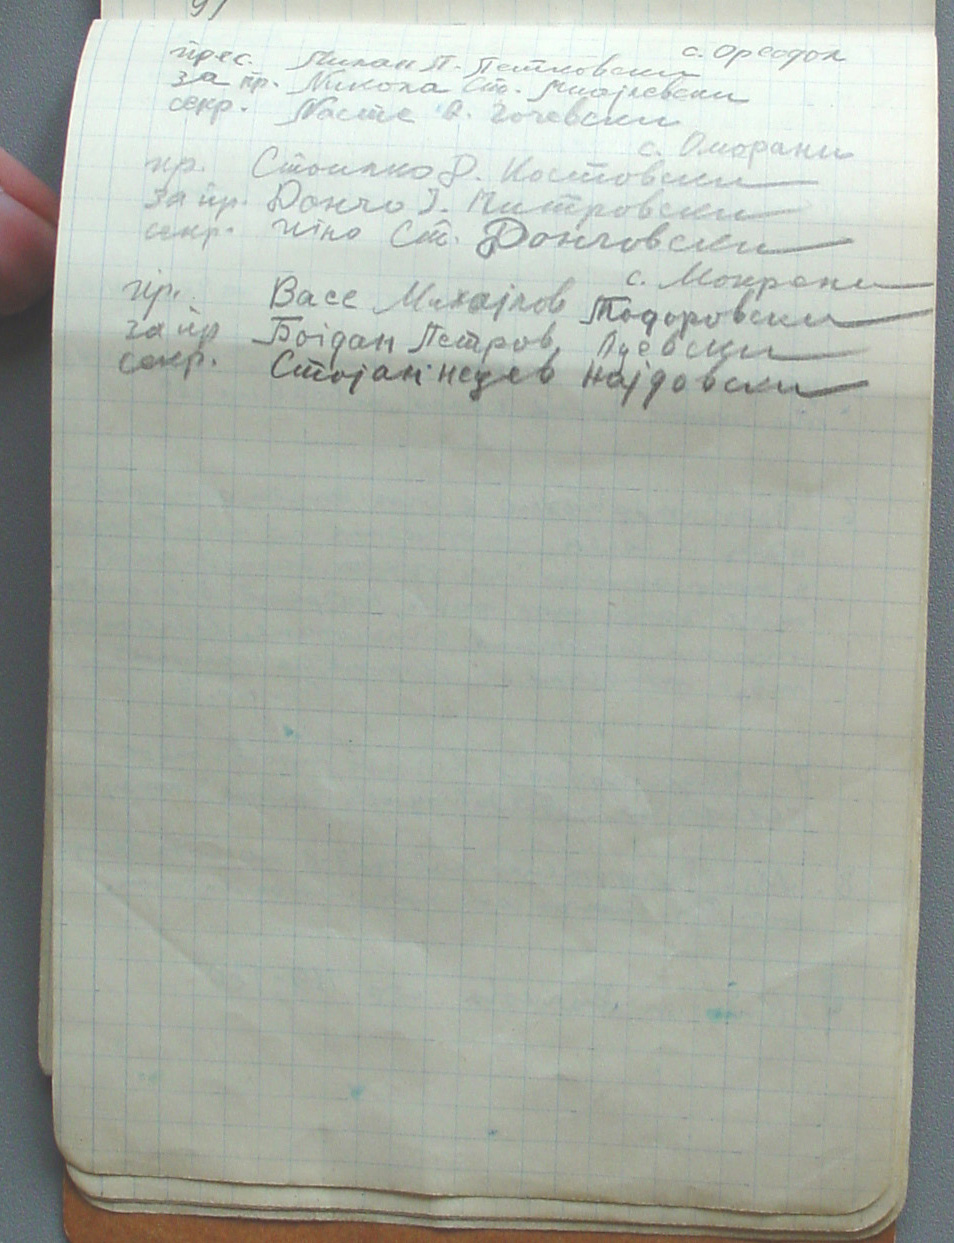 с. Ореодол
прес. Милан П. Петковски
за пр. Никола Ст. Миајлевски
секр. Насте В. Гочевски
с. Оморани
пр. Стоилко Д. Костовски
за пр. Дончо Ј. Митровски
секр. Ст. Дончовски
с. Мокрени
пр. Васе Михајлов Тодоровски
за пр Богдан Петров
секр. Стојан Најдовски